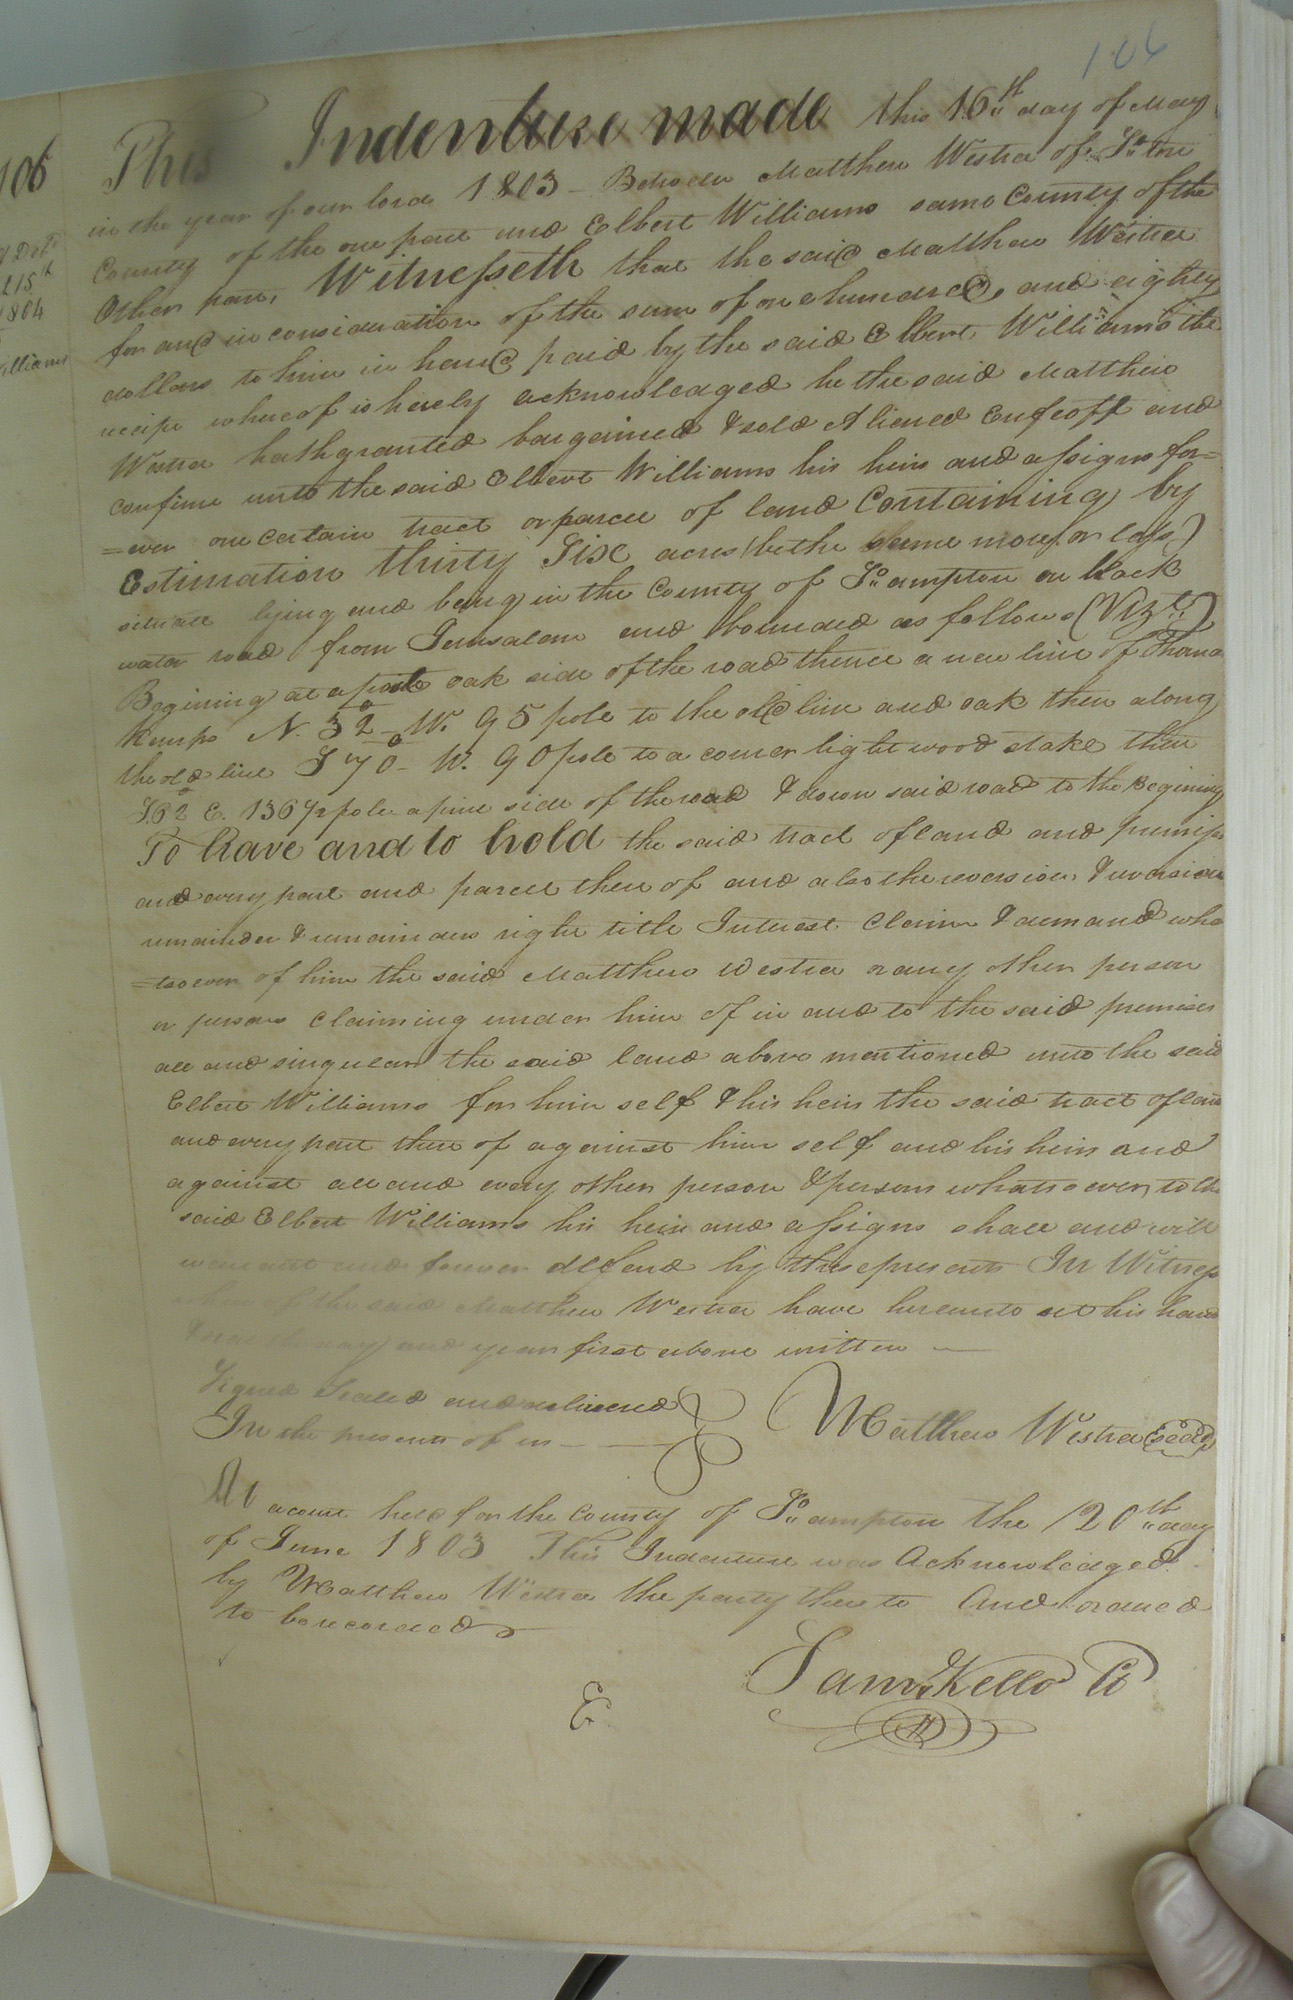 106
106
Deld
215th
1804
illiams
This Indenture made this 16th day of May
in the year of our lord 1803 – Between Matthew Westra of So.ton
County of the one part and Elbert Williams same County of the
Other part, Witnesseth that the said Matthew Westra
for and in consideration of the sum of one hundred, and eighty
dollars to him in hand paid by the said Elbert Williams the
receipt whereof is hereby acknowledged he the said Matthew
Westra hath granted bargained & sold Aliened Enfeoff and
confirm unto the said Elbert Williams his heirs and assigns for=
=ever one certain tract or parcel of land Containing by
Estimation thirty Six acres (be the same more or less)
situate lying and being in the County of So.ampton on black
water road from Jerusalem and bounded as follows (Vizt.)
Begining at a post oak side of the road thence a new line of Thomas
Kemps N. 32° W. 95 pole to the old line and oak then along
the old line S 70° W. 90 pole to a corner lightwood stake then
S.62° E. 136 1/2 pole a pine side of the road & down said road to the Begining
To have and to hold the said tract of land and premises
and every part and parcel there of and also the reversion & reversions
remainder & remainders right title Interest Claim & demand what
=tsoever of him the said Matthew Westra or any other person
or persons Claiming under him of in and to the said premises
all and singular the said land above mentioned unto the said
Elbert Williams for him self & his heirs the said tract of land
and every part there of against him self and his heirs and
against all and every other person & persons whatsoever to the
said Elbert Williams his heirs and assigns shall and will
warrant and forever defend by these presents In Witness
where of the said Matthew Westra have hereunto set his hand
& seal the day and year first above written —
Signed Sealed and delivered
In the presents of us —
Matthew Westra (Seal)
At a court held for the County of So.ampton the 20th day
of June 1803 This Indenture was Acknowledged
by Matthew Westra the party there to And ordered
to be recorded
Saml. Kello Ct
E.